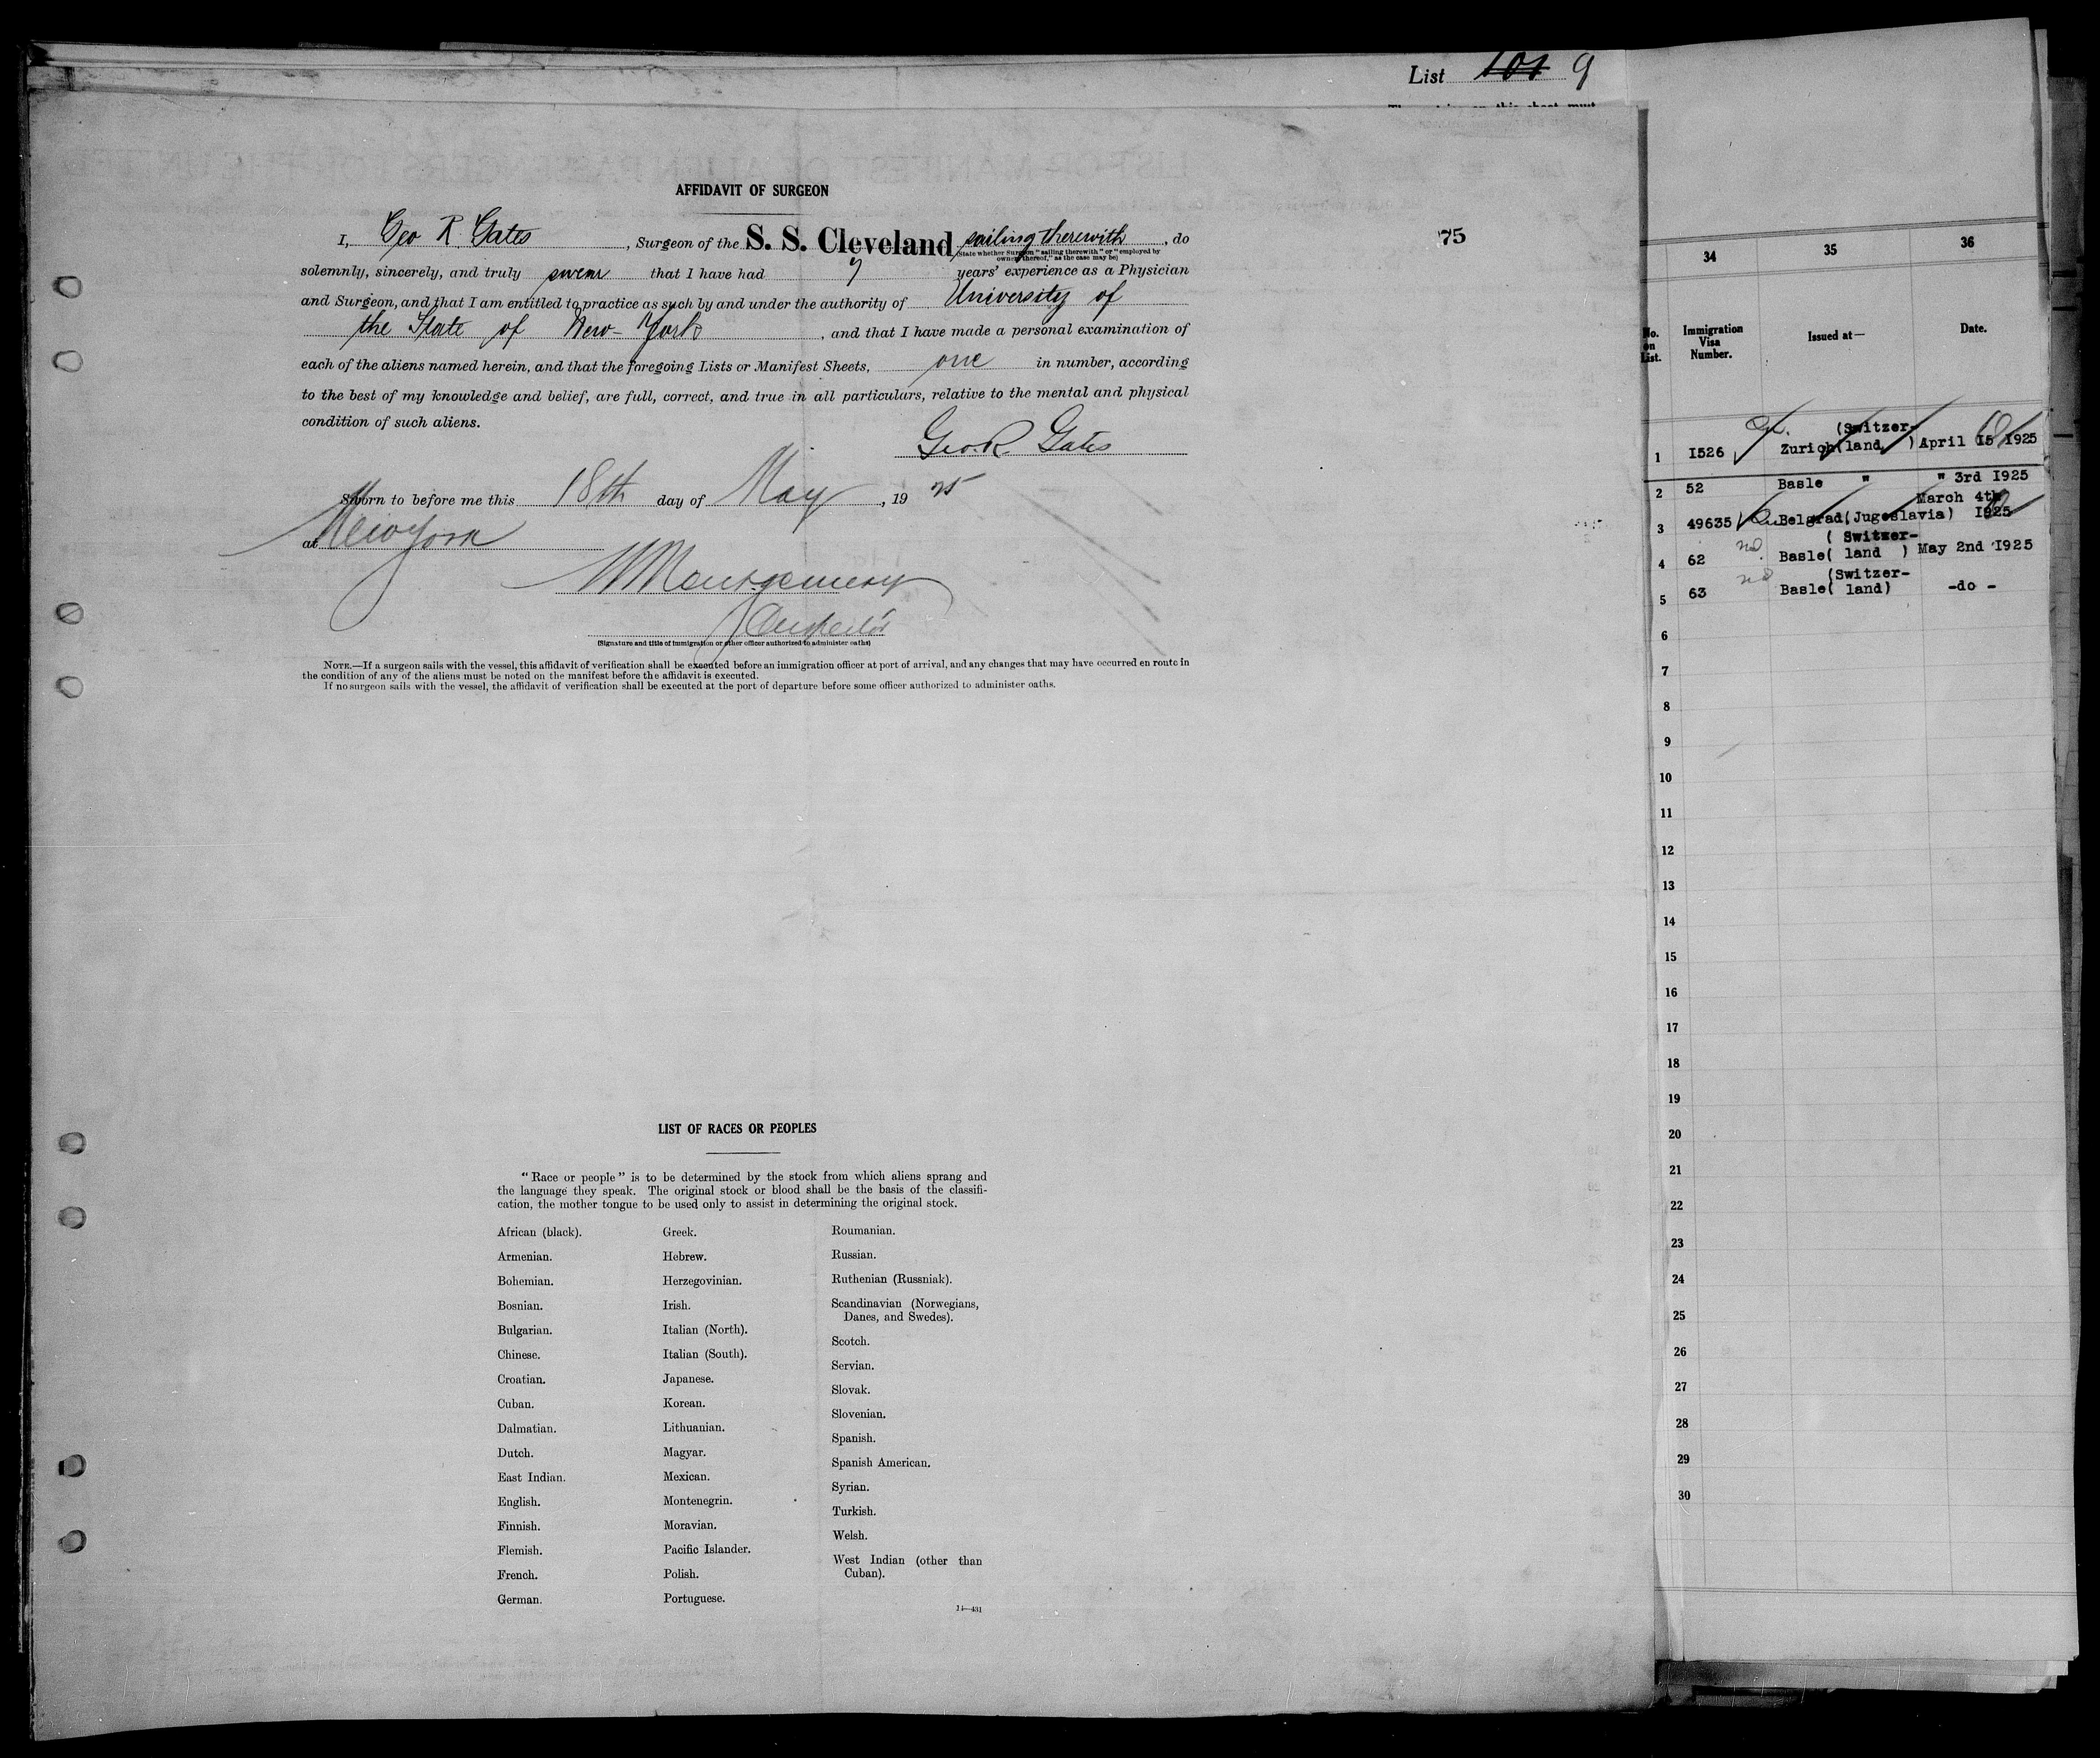 List 101 9
AFFIDAVIT OF SURGEON
I, Geo R. Gates, Surgeon of the S. S. Cleveland sailing therewith, do
(State whether Surgeon "sailing therewith" or "employed by
owners thereof," as the case may be)
solemnly, sincerely, and truly swear that I have had 7 years' experience as a Physician
and Surgeon, and that I am entitled to practice as such by and under the authority of University of
the State of New-York, and that I have made a personal examination of
each of the aliens named herein, and that the foregoing Lists or Manifest Sheets, one in number, according
to the best of my knowledge and belief, are full, correct, and true in all particulars, relative to the mental and physical
condition of such aliens.
Geo. R. Gates
Sworn to before me this 18th day of May, 19 25
at New York
Montgomery
Inspector
(Signature and title of immigration or other officer authorized to administer oaths)
NOTE.—If a surgeon sails with the vessel, this affidavit of verification shall be executed before an immigration officer at port of arrival, and any changes that may have occurred en route in
the condition of any of the aliens must be noted on the manifest before the affidavit is executed.
If no surgeon sails with the vessel, the affidavit of verification shall be executed at the port of departure before some officer authorized to administer oaths.
75
LIST OF RACES OR PEOPLES
"Race or people" is to be determined by the stock from which aliens sprang and
the language they speak. The original stock or blood shall be the basis of the classifi-
cation, the mother tongue to be used only to assist in determining the original stock.
African (black).
Armenian.
Bohemian.
Bosnian.
Bulgarian.
Chinese.
Croatian.
Cuban.
Dalmatian.
Dutch.
East Indian.
English.
Finnish.
Flemish.
French.
German.
Greek.
Hebrew.
Herzegovinian.
Irish.
Italian (North).
Italian (South).
Japanese.
Korean.
Lithuanian.
Magyar.
Mexican.
Montenegrin.
Moravian.
Pacific Islander.
Polish.
Portuguese.
Roumanian.
Russian.
Ruthenian (Russniak).
Scandinavian (Norwegians,
Danes, and Swedes).
Scotch.
Servian.
Slovak.
Slovenian.
Spanish.
Spanish American.
Syrian.
Turkish.
Welsh.
West Indian (other than
Cuban).
14—431
34 35 36
No. on List. Immigration Visa Number. Issued at— Date.
(Switzer-
1 I526 Zurich(land ) April I5 I925
2 52 Basle " " 3rd I925
March 4th
3 49635 Belgrad(Jugoslavia) I925
( Switzer-
4 62 Basle( land ) May 2nd I925
(Switzer-
5 63 Basle( land) -do -
6
7
8
9
10
11
12
13
14
15
16
17
18
19
20
21
22
23
24
25
26
27
28
29
30